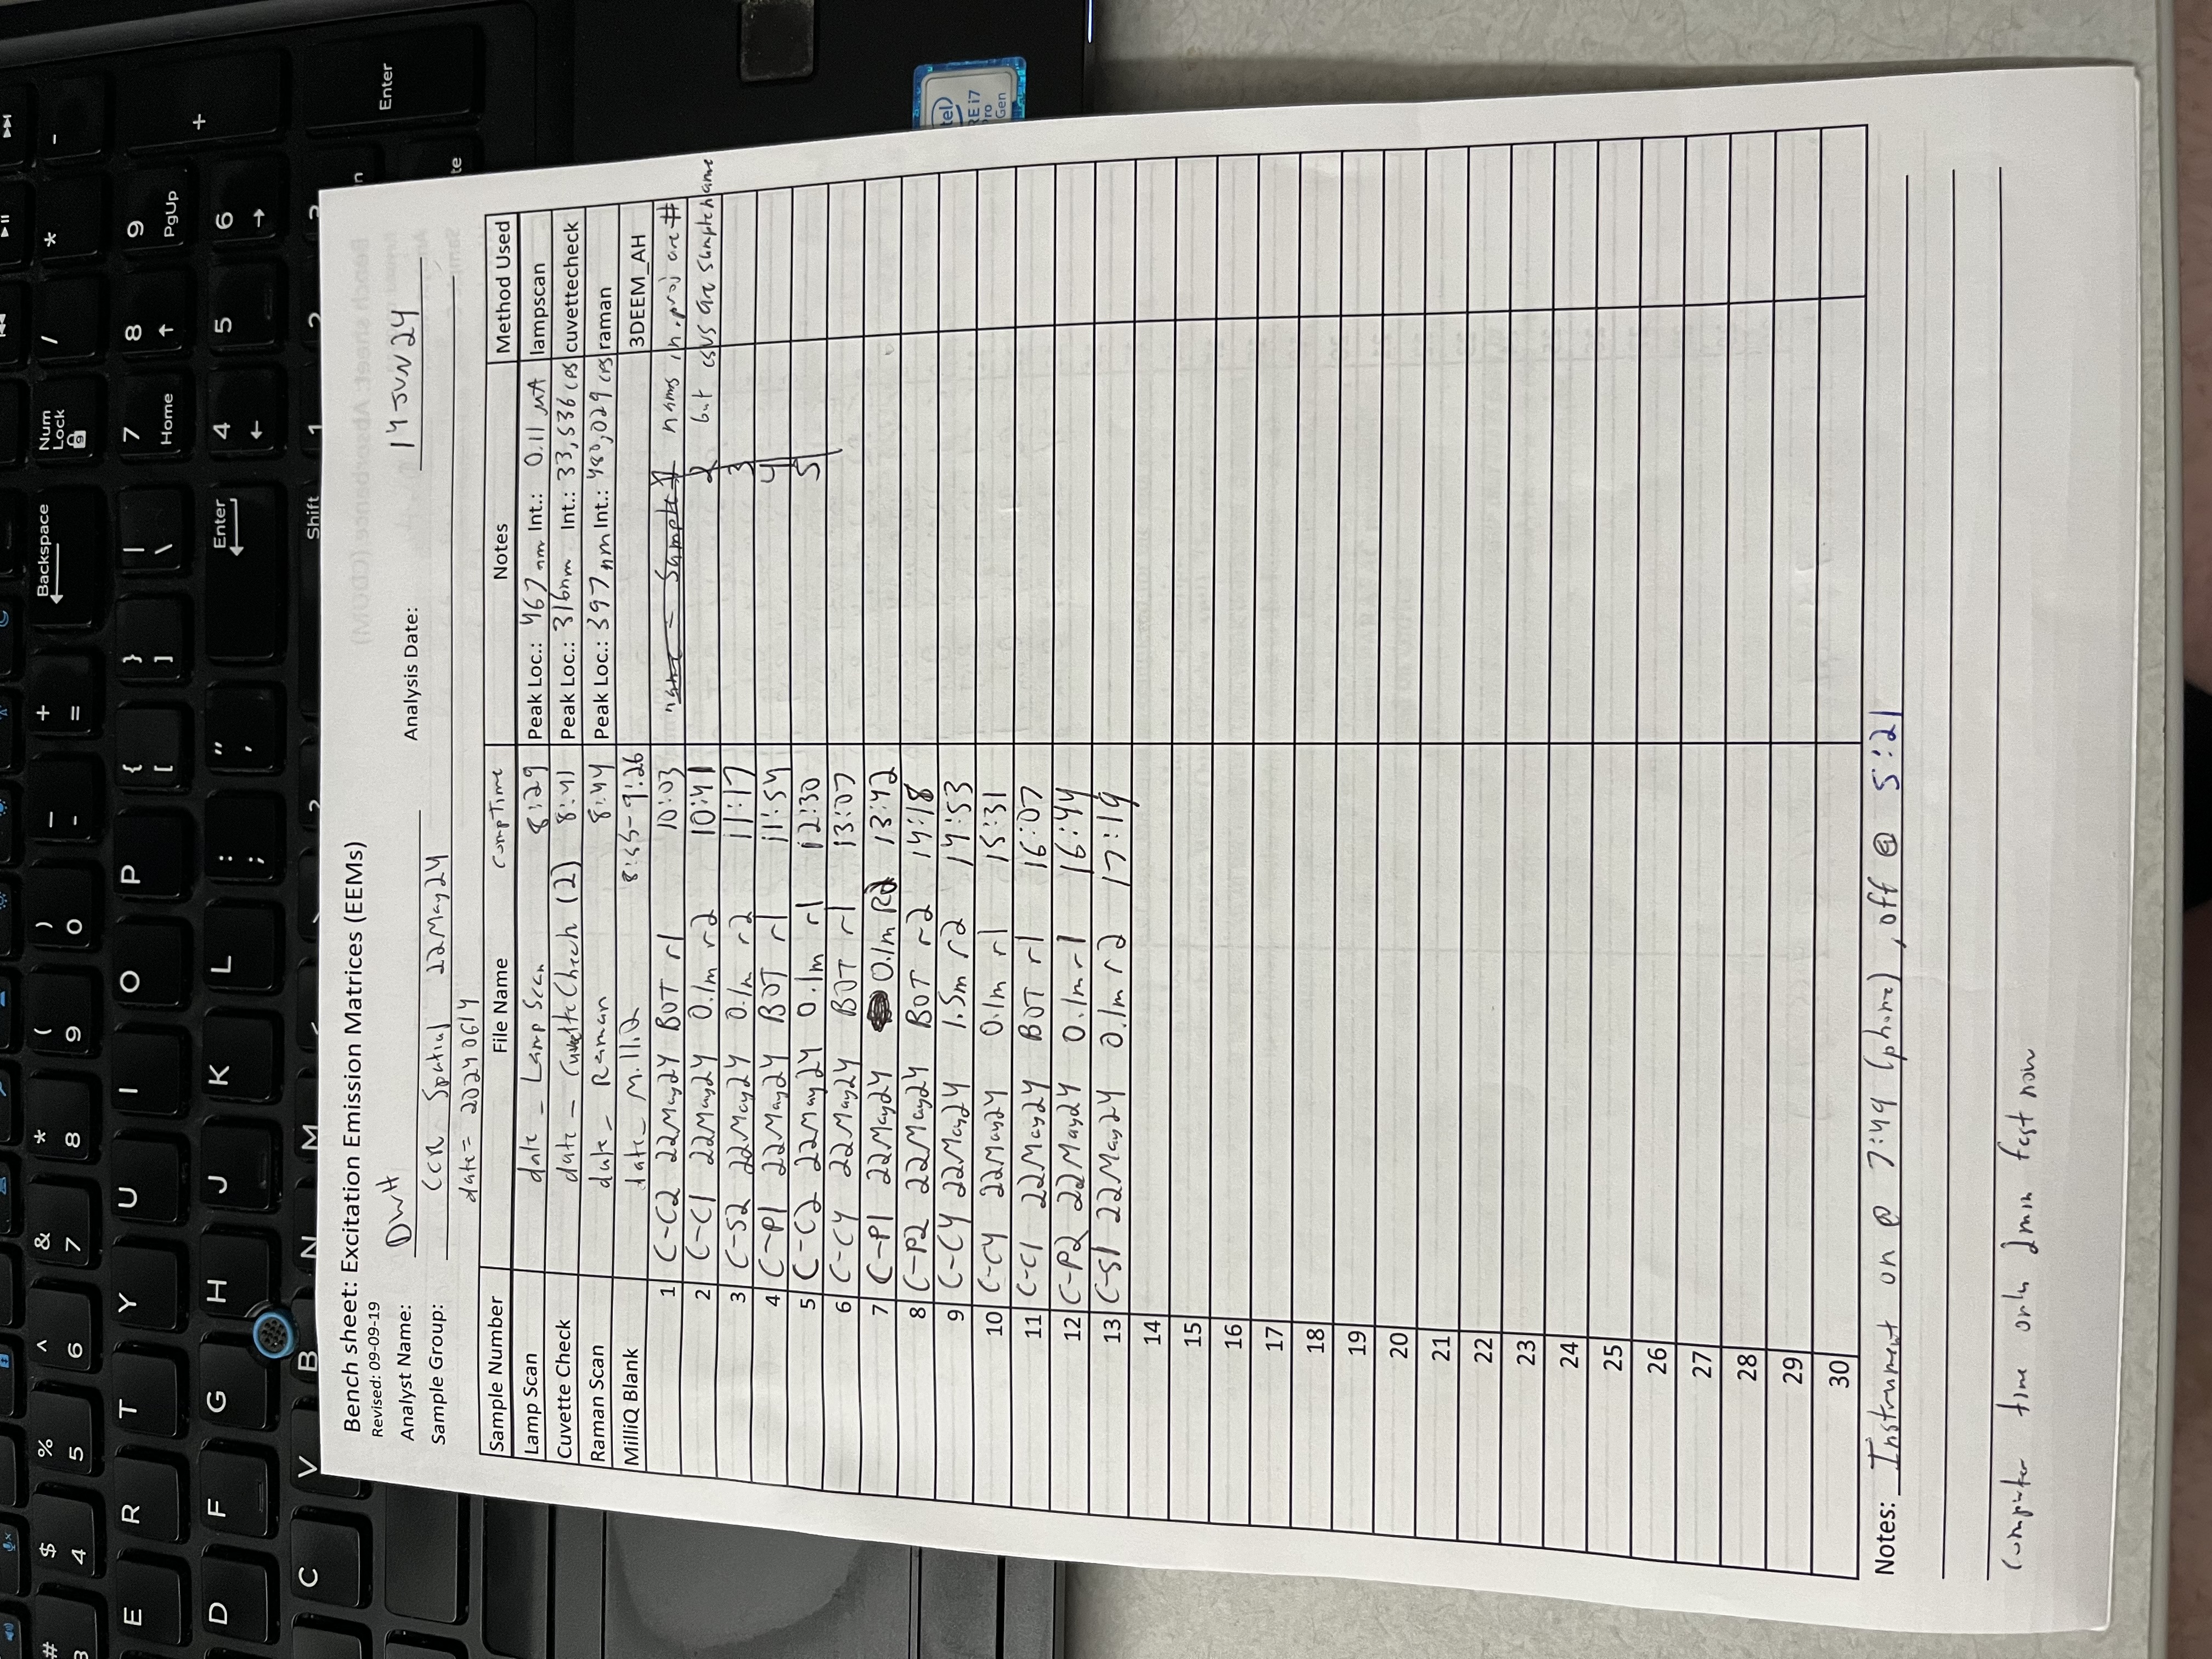 # $ % ^ & * ( ) _ + Backspace Num Lock / * -
3 4 5 6 7 8 9 0 - =
E R T Y U I O P { } | 7 8 9 +
[ ] \ Home PgUp
D F G H J K L : " Enter 4 5 6
; '
C V B N M < > ? Shift 1 2 3
Enter
Bench sheet: Excitation Emission Matrices (EEMs)
Revised: 09-09-19
Analyst Name: DWH Analysis Date: 14 JUN 24
Sample Group: CCR Spatial 22May24
date = 20240614
Sample Number File Name Comp Time Notes Method Used
Lamp Scan date _ Lamp Scan 8:29 Peak Loc.: 467 nm Int.: 0.11 µA lampscan
Cuvette Check date _ Cuvette Check (2) 8:41 Peak Loc.: 316nm Int.: 33,536 cps cuvettecheck
Raman Scan date _ Raman 8:44 Peak Loc.: 397 nm Int.: 480,029 cps raman
MilliQ Blank date _ MilliQ 8:55-9:26 3DEEM_AH
1 C-C2 22May24 BOT r1 10:03 name = Sample 1 nams in .proj are #
2 C-C1 22May24 0.1m r2 10:41 2 but csvs are sample name
3 C-S2 22May24 0.1m r2 11:17 3
4 C-P1 22May24 BOT r1 11:54 4
5 C-C2 22May24 0.1m r1 12:30 5
6 C-C4 22May24 BOT r1 13:07
7 C-P1 22May24 0.1m R2 13:42
8 C-P2 22May24 BOT r2 14:18
9 C-C4 22May24 1.5m r2 14:53
10 C-C4 22May24 0.1m r1 15:31
11 C-C1 22May24 BOT r1 16:07
12 C-P2 22May24 0.1m r1 16:44
13 C-S1 22May24 0.1m r2 17:19
14
15
16
17
18
19
20
21
22
23
24
25
26
27
28
29
30
Notes: Instrument on @ 7:49 (phone), off @ 5:21
computer time only 2min fast now